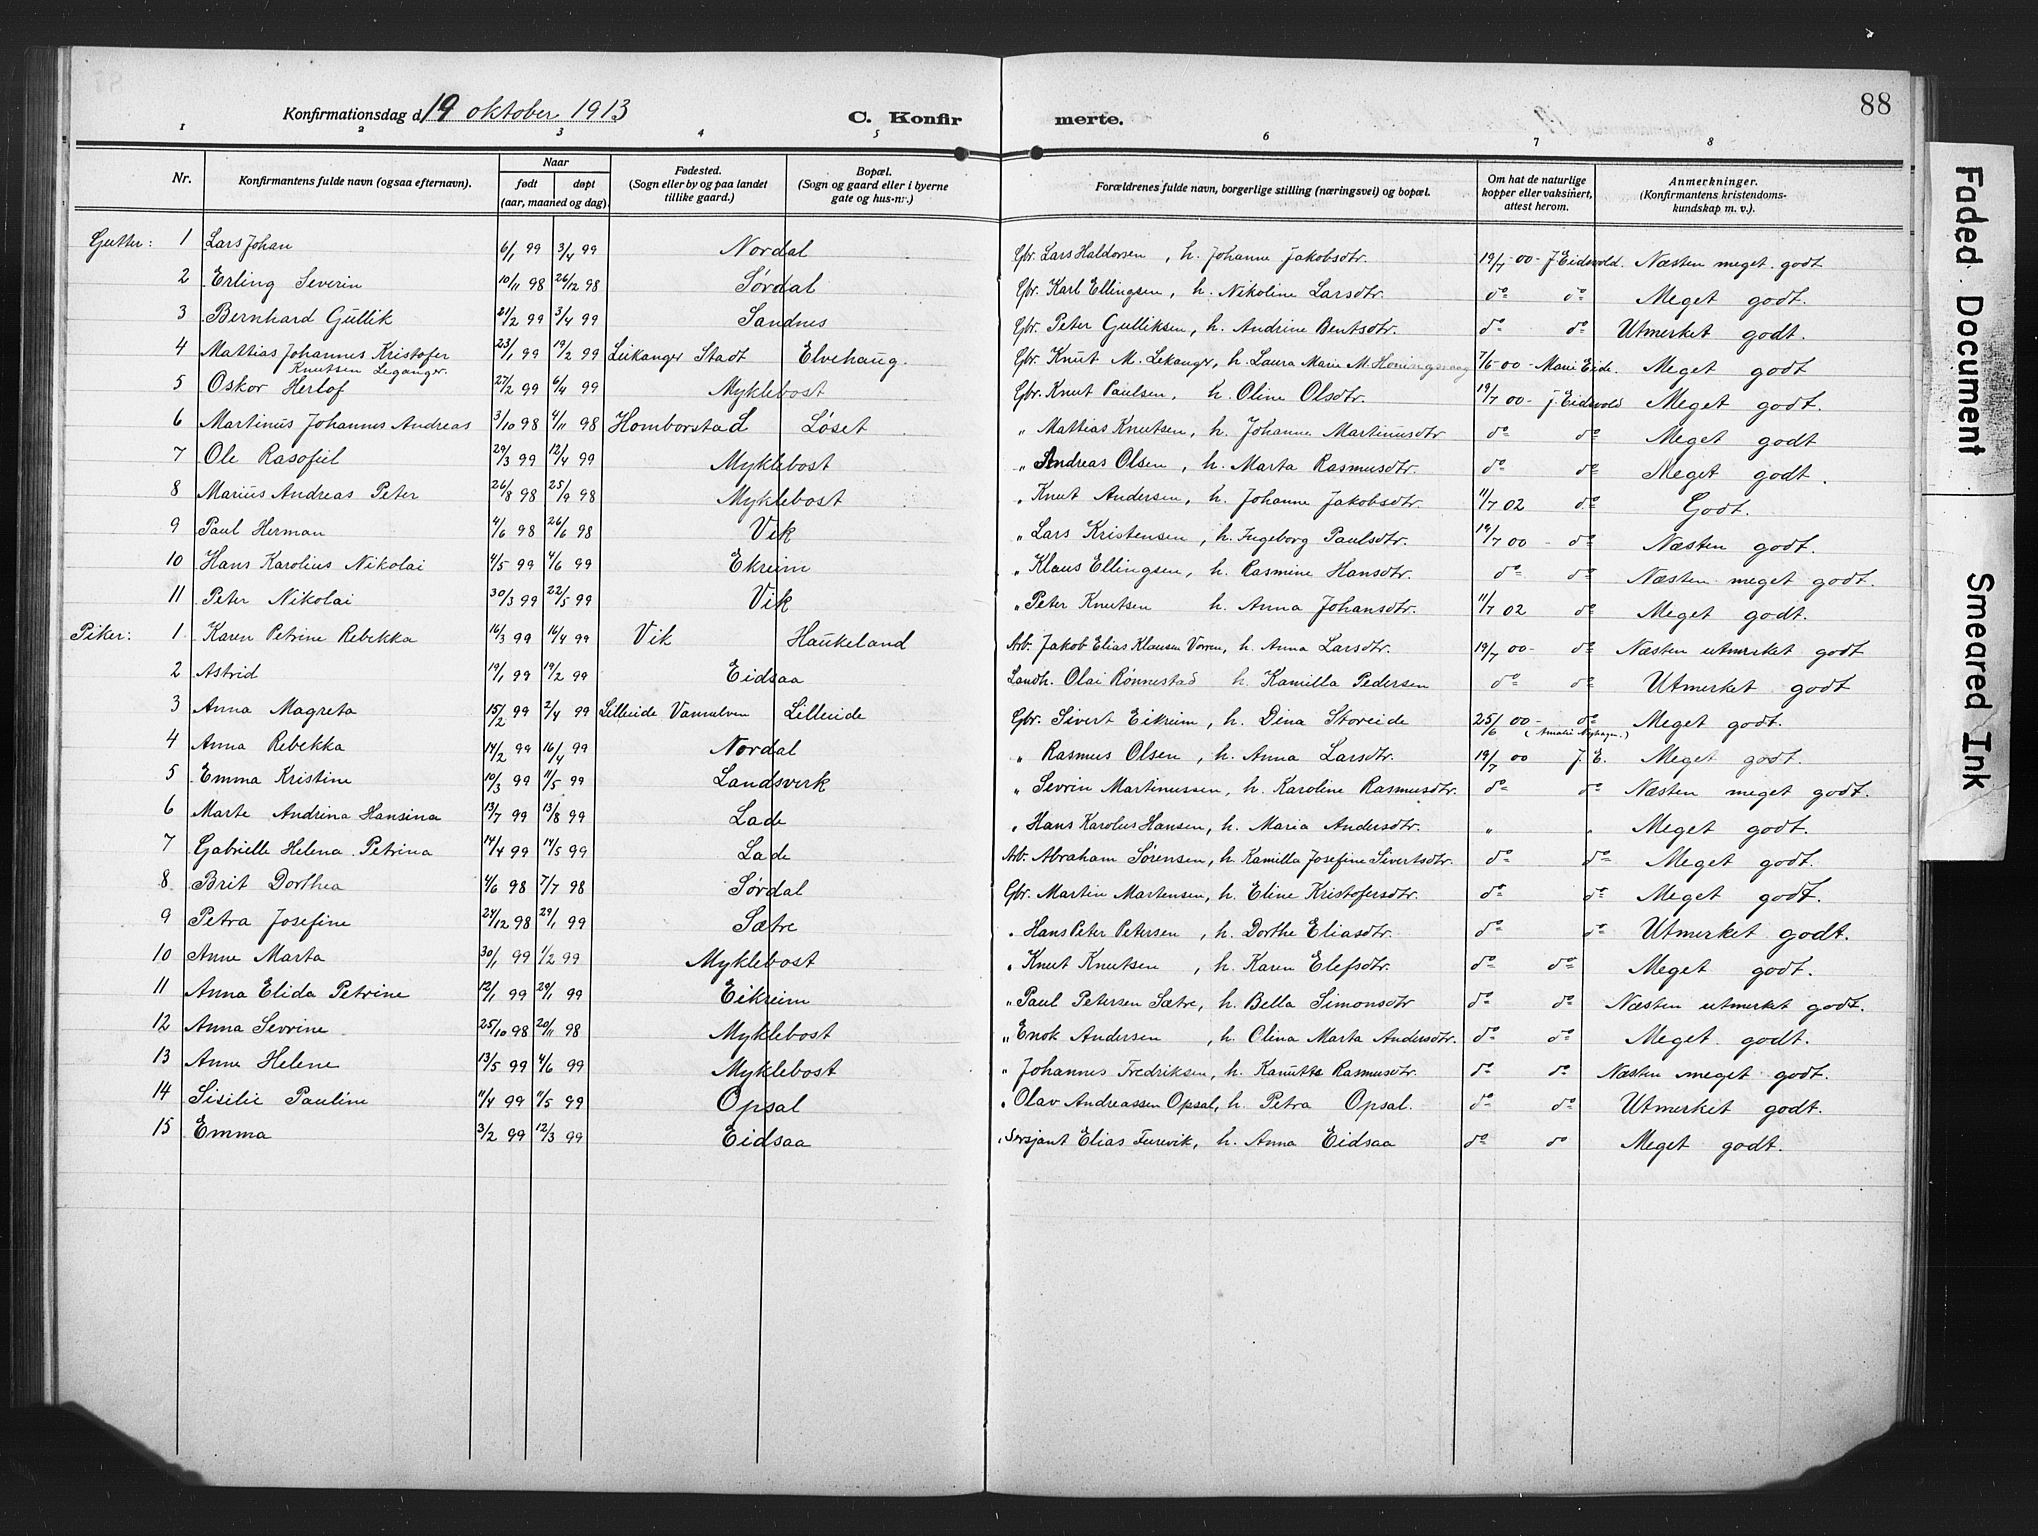 88
Konfirmationsdag d. 19 oktober 1913
C. Konfirmerte.
1 2 3 4 5 6 7 8
Nr. Konfirmantens fulde navn (ogsaa efternavn). Naar født døpt (aar, maaned og dag). Fødested. (Sogn eller by og paa landet tillike gaard.) Bopæl. (Sogn og gaard eller i byerne gate og hus-nr.) Forældrenes fulde navn, borgerlige stilling (næringsvei) og bopæl. Om hat de naturlige kopper eller vaksinert, attest herom. Anmerkninger. (Konfirmantens kristendomskundskap m. v.).
Gutter: 1 Lars Johan 6/1 99 3/4 99 Nordal Gbr. Lars Haldorsen, h. Johanne Jakobsdtr. 19/7 00 - J. Eidsvold. Næsten meget godt
2 Erling Severin 10/11 98 26/12 98 Sørdal Gbr. Karl Ellingsen, h. Nikoline Larsdtr. do do Meget godt.
3 Bernhard Gullik 21/2 99 3/4 99 Sandnes Gbr. Peter Gulliksen, h. Andrine Bentsdtr. do do Utmerket godt.
4 Mattias Johannes Kristofer Knutsen Leganger. 23/1 99 19/2 99 Leikanger Stadt Elvehaug. Gbr. Knut M. Lekanger, h. Laura Marie M. Honingsvaag 7/5 00 - Marie Eide. Meget godt
5 Oskar Herlof 27/2 99 6/4 99 Myklebost Gbr. Knut Paulsen, h. Oline Olsdtr. 19/7 00 - J. Eidsvold Meget godt.
6 Martinus Johannes Andreas 3/10 98 4/11 98 Homborstad Løset " Mattias Knutsen, h. Johanne Martinusdtr do do Meget godt
7 Ole Rasofiel 29/3 99 12/4 99 Myklebost " Andreas Olsen, h. Marta Rasmusdtr. do do Meget godt.
8 Marius Andreas Peter 26/8 98 25/9 98 Myklebost " Knut Andersen, h. Johanne Jakobsdtr. 11/7 02 do Godt.
9 Paul Herman 4/6 98 26/6 98 Vik " Lars Kristensen, h. Ingeborg Paulsdtr. 19/7 00 - do Næsten godt.
10 Hans Karolius Nikolai 4/5 99 4/6 99 Ekreim " Klaus Ellingsen, h. Rasmine Hansdtr. do do Næsten meget godt.
11 Peter Nikolai 30/3 99 22/5 99 Vik " Peter Knutsen h. Anna Johansdtr. 11/7 02 do Meget godt.
Piker: 1 Karen Petrine Rebekka 16/3 99 16/4 99 Vik Haukeland Arb. Jakob Elias Klausen Vorren, h. Anna Larsdtr. 19/7 00 - do Næsten utmerket godt
2 Astrid 19/1 99 19/2 99 Eidsaa Landh. Olai Rønnestad h. Kamilla Pedersen do do Utmerket godt
3 Anna Magreta 15/2 99 2/4 99 Lilleeide Vannelven Lilleeide Gbr. Sivert Eikreim, h. Dina Storeide 25/6 00 - do Meget godt.
4 Anna Rebekka 14/2 99 16/4 99 Nordal " Rasmus Olsen, h. Anna Larsdtr. 19/7 00 J. E. Meget godt.
5 Emma Kristine 10/3 99 11/5 99 Landsverk " Sevrin Martinussen, h. Karoline Rasmusdtr. do do Næsten meget godt.
6 Marte Andrina Hansina 13/7 99 13/8 99 Lade " Hans Karolus Hansen, h. Maria Andersdtr. " " Meget godt.
7 Gabrielle Helena Petrina 14/4 99 14/5 99 Lade Arb. Abraham Sørensen, h. Kamilla Josefine Sivertsdtr. do do Meget godt.
8 Brit Dorthea 4/6 98 7/7 98 Sørdal Gbr. Martin Martensen, h. Eline Kristofersdtr. do do Meget godt.
9 Petra Josefine 24/12 98 29/1 99 Sætre " Hans Peter Petersen, h. Dorthe Eliasdtr. do do Utmerket godt.
10 Anne Marta 30/1 99 1/2 99 Myklebost " Knut Knutsen, h. Karen Elefsdtr. do do Meget godt.
11 Anna Elida Petrine 12/1 99 29/1 99 Eikreim " Paul Petersen Sætre, h. Bella Simonsdtr do do Næsten utmerket godt.
12 Anna Sevrine 25/10 98 20/11 98 Myklebost " Enok Andersen, h. Olina Marta Andersdtr. do do Meget godt.
13 Anne Helene 13/5 99 4/6 99 Myklebost " Johannes Fredriksen, h. Kanutte Rasmusdtr. do do Næsten meget godt.
14 Sisilie Pauline 11/4 99 11/5 99 Opsal " Olav Andreassen Opsal, h. Petra Opsal. do do Utmerket godt.
15 Emma 3/2 99 12/3 99 Eidsaa " Sersjant Elias Furevik, h. Anna Eidsaa do do Meget godt.
Faded Document
Smeared Ink